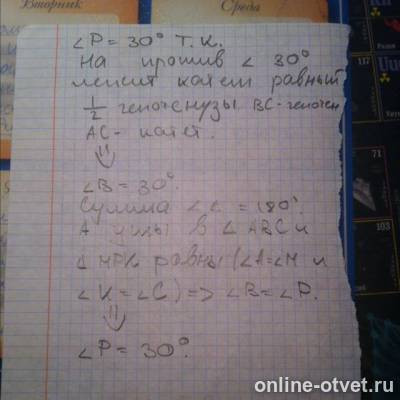 Вторник
Среда
∠P = 30° т.к.
На против ∠ 30°
лежит катет равный
1/2 гипотенузы BC - гипотен
AC - катет.
⇓
∠B = 30°.
Сумма ∠ = 180°.
А углы в ∠ ABC и
Δ MPK равны (∠A=∠M и
∠K = ∠C) => ∠B = ∠P.
⇓
∠P = 30°.
117
71
103
online-otvet.ru